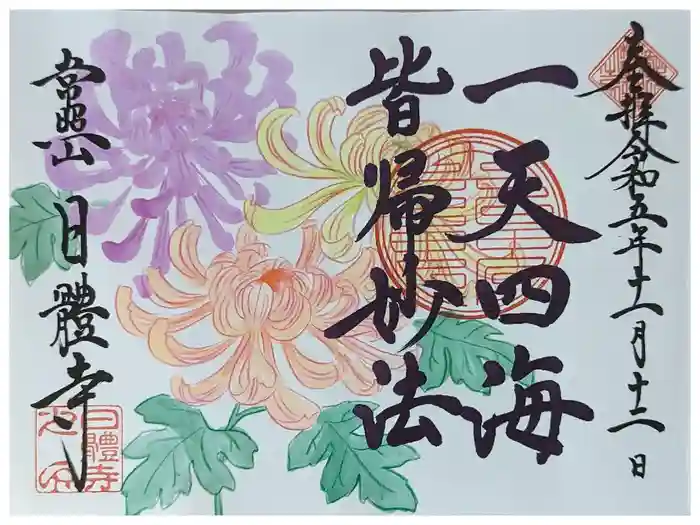 奉拝 令和五年十一月十二日
一天四海
皆帰妙法
常照山
日體寺
日體寺